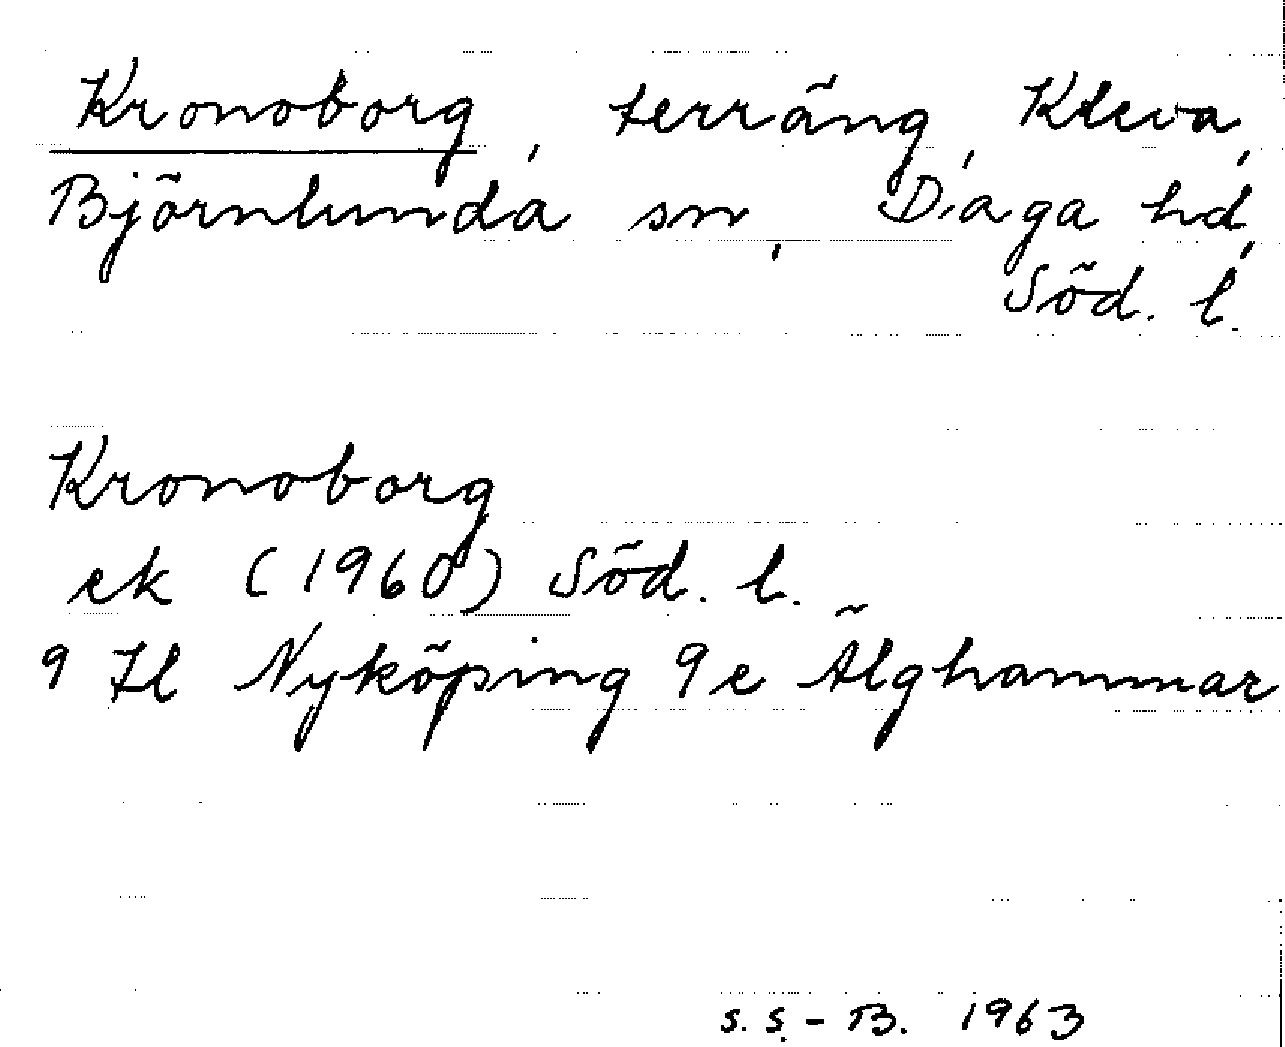 Kronoborg, terräng, Kleva,
Björnlunda sn, Daga hd,
Söd. l.
Kronoborg
ek (1960) Söd. l.
9 Il Nyköping 9e Älghammar
S. S. - B. 1963